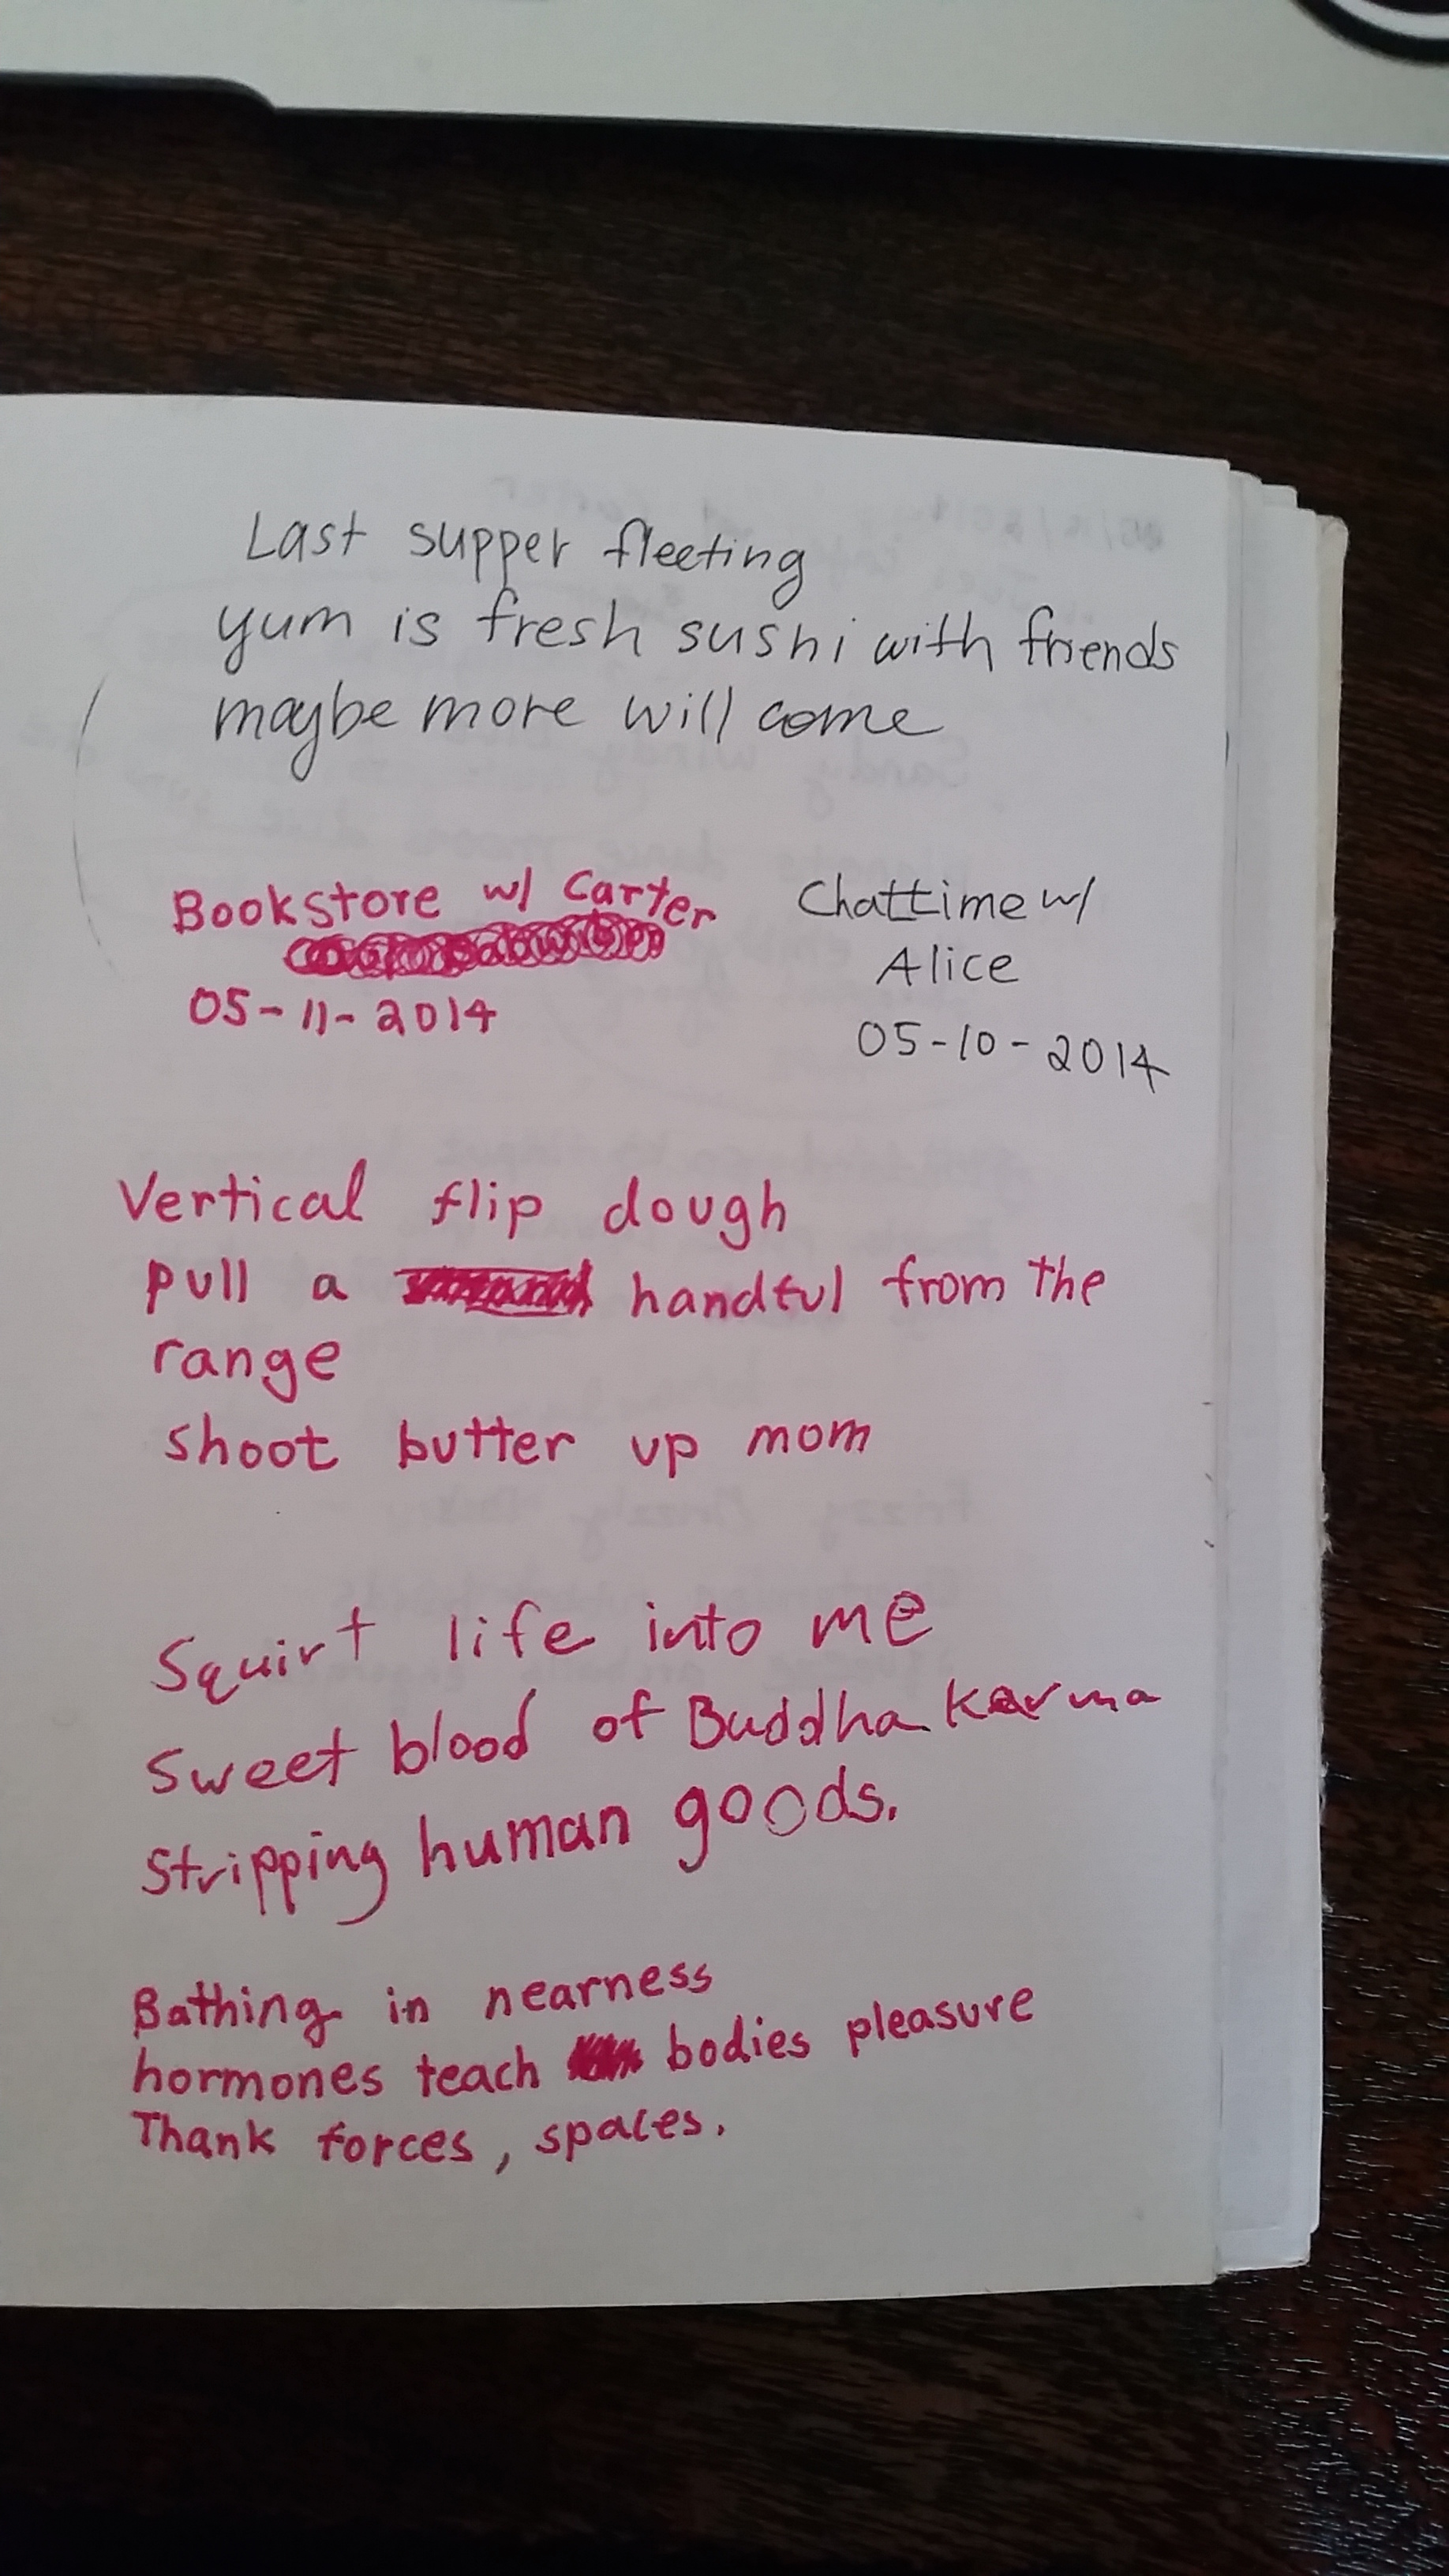 Last supper fleeting
yum is fresh sushi with friends
maybe more will come
Bookstore w/ Carter
05-11-2014
Chattime w/
Alice
05-10-2014
Vertical flip dough
pull a handful from the
range
shoot butter up mom
Squirt life into me
sweet blood of Buddha karma
stripping human goods.
Bathing in nearness
hormones teach bodies pleasure
Thank forces, spaces.